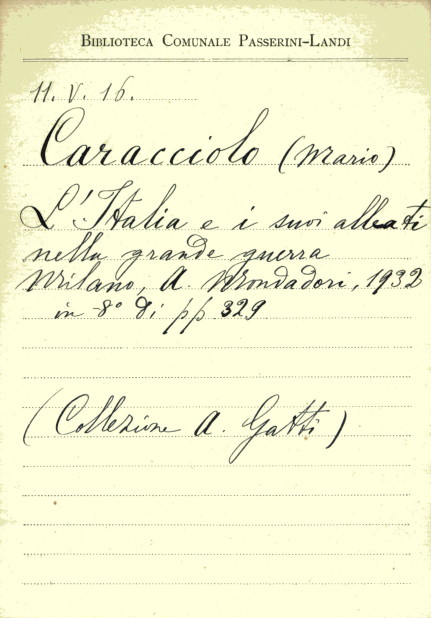 BIBLIOTECA COMUNALE PASSERINI-LANDI
11. V. 16.
Caracciolo (Mario)
L'Italia e i suoi alleati
nella grande guerra
Milano, A. Mondadori, 1932
in 8° di pp 329
(Collezione A. Gatti)